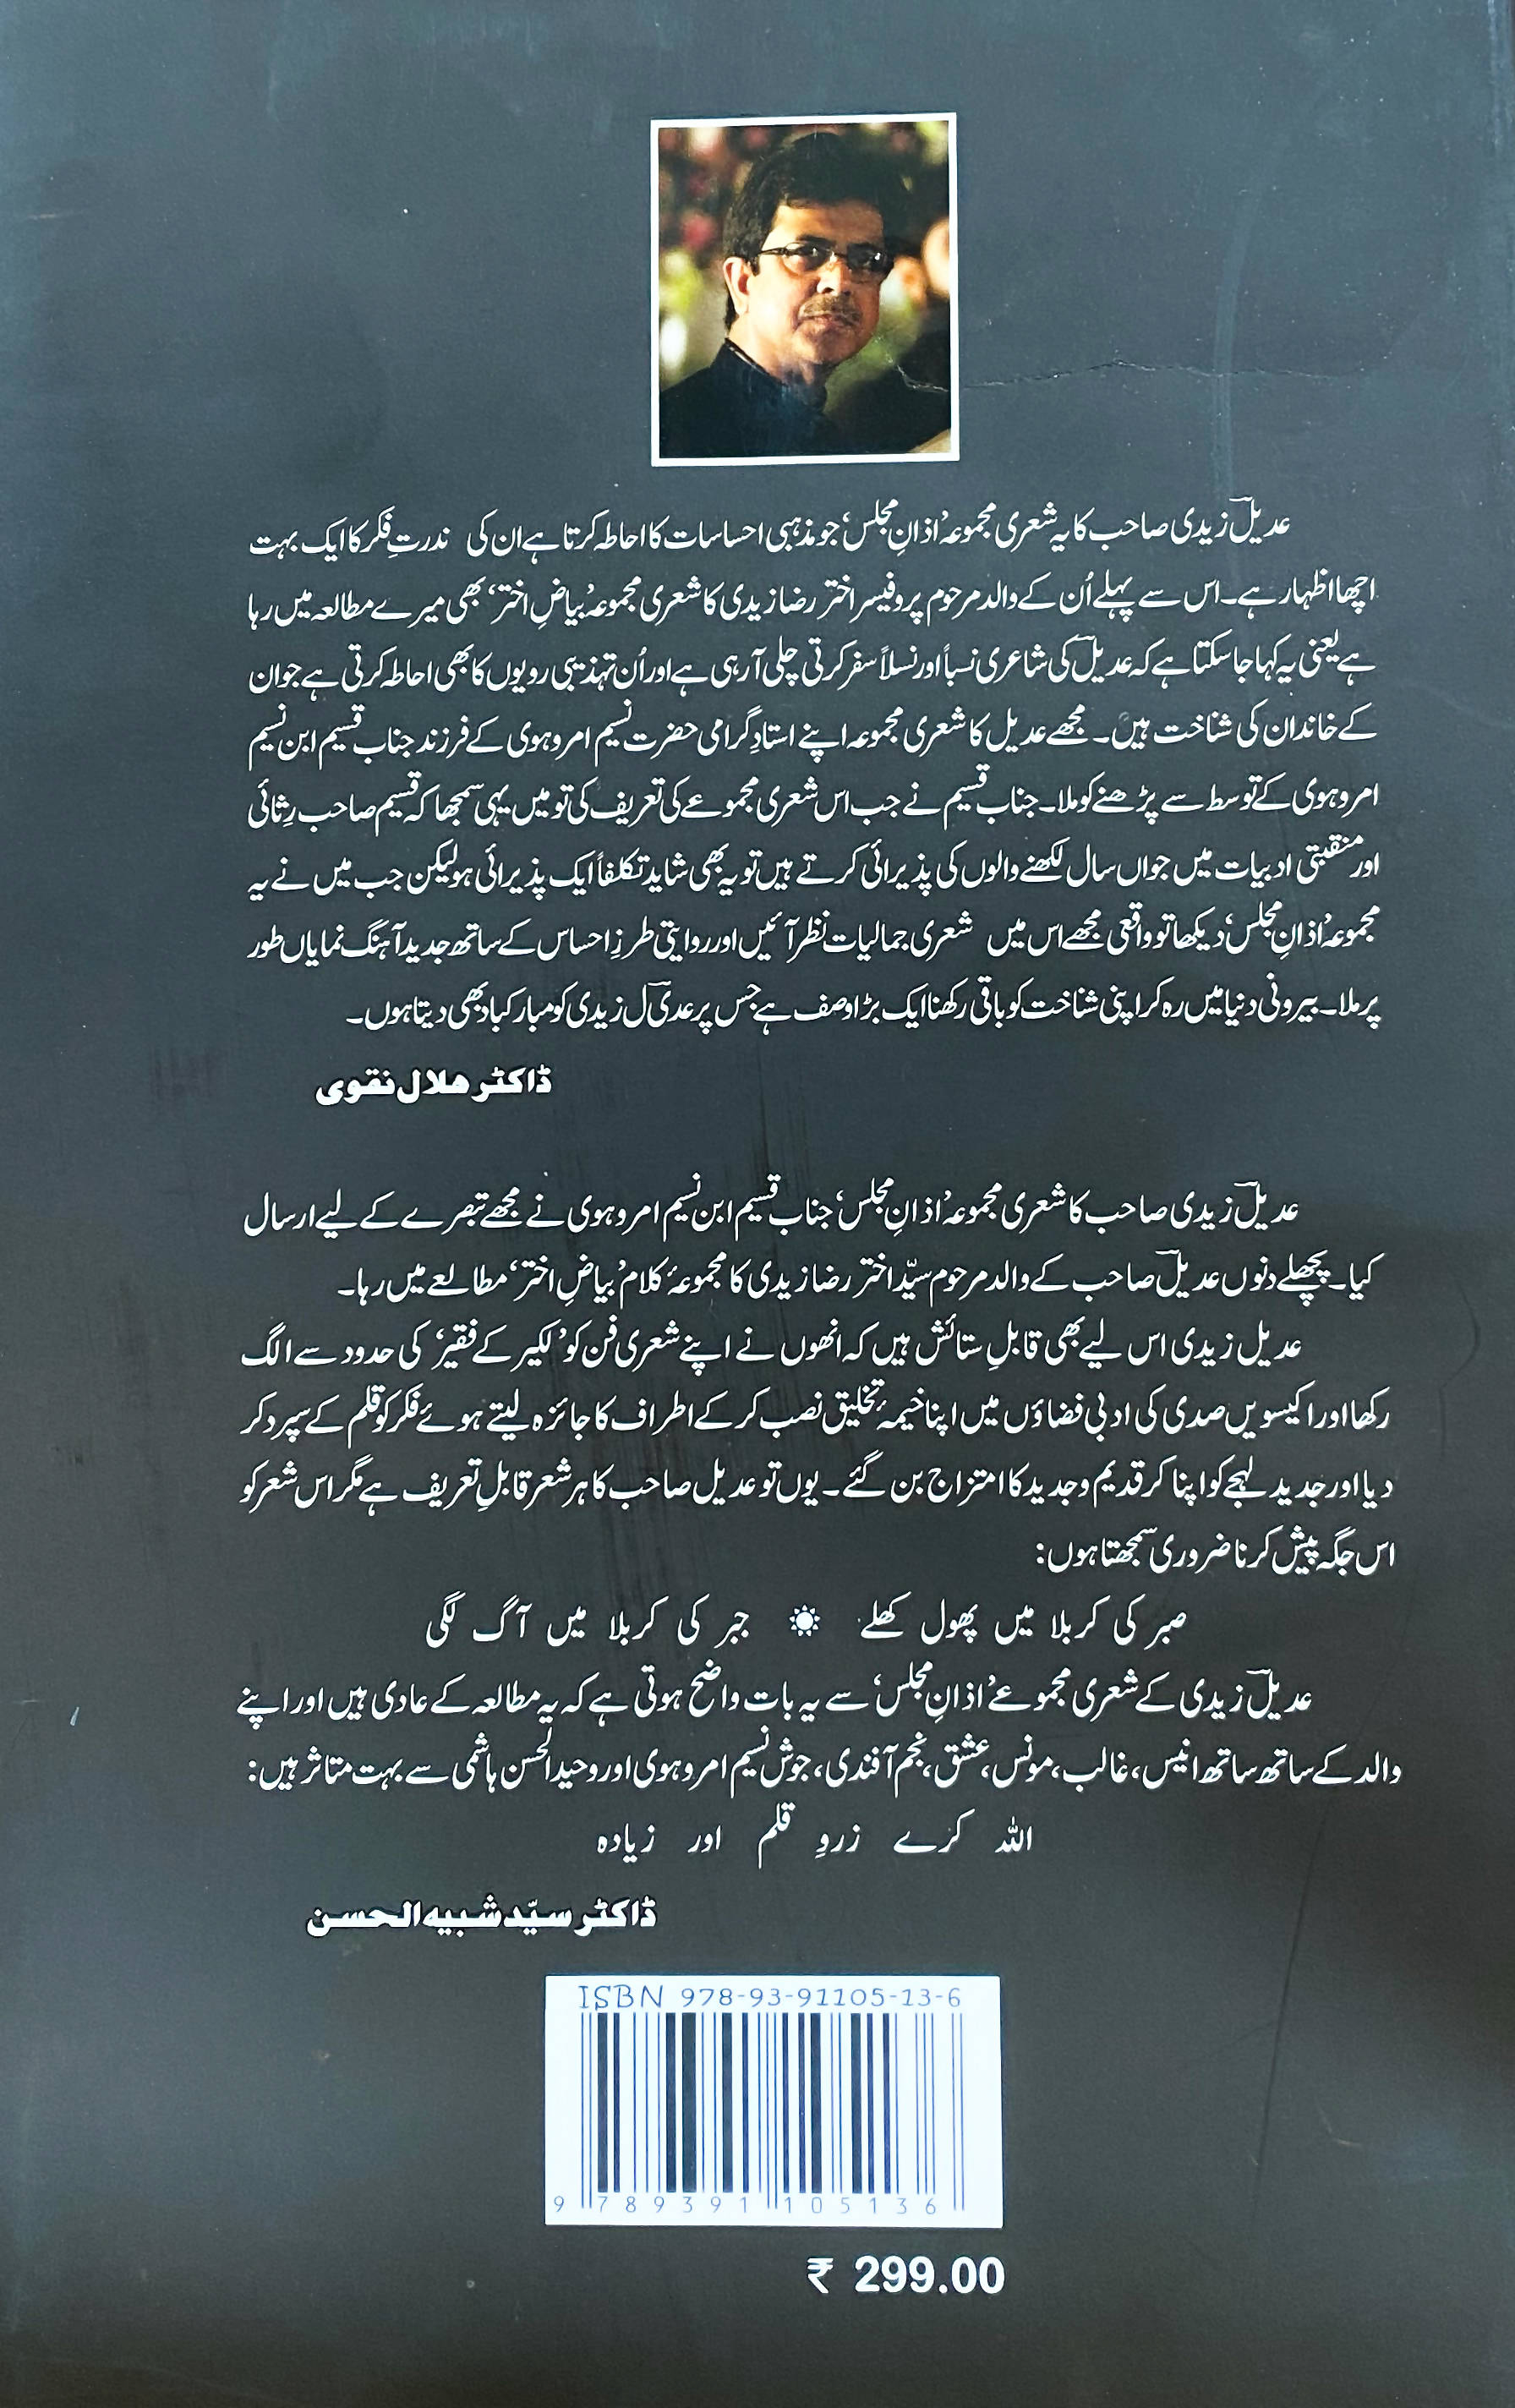 عدیلؔ زیدی صاحب کا یہ شعری مجموعہ ’اذانِ مجلس‘ جو مذہبی احساسات کا احاطہ کرتا ہے ان کی ندرتِ فکر کا ایک بہت
اچھا اظہار ہے۔ اس سے پہلے اُن کے والد مرحوم پروفیسر اختر رضا زیدی کا شعری مجموعہ ’بیاضِ اختر‘ بھی میرے مطالعہ میں رہا
ہے یعنی یہ کہا جا سکتا ہے کہ عدیلؔ کی شاعری نسباً اور نسلاً سفر کرتی چلی آ رہی ہے اور اُن تہذیبی رویوں کا بھی احاطہ کرتی ہے جو ان
کے خاندان کی شناخت ہیں۔ مجھے عدیل کا شعری مجموعہ اپنے استادِ گرامی حضرت نسیم امروہوی کے فرزند جناب قسیم ابن نسیم
امروہوی کے توسط سے پڑھنے کو ملا۔ جناب قسیم نے جب اس شعری مجموعے کی تعریف کی تو میں یہی سمجھا کہ قسیم صاحب رِثائی
اور منقبتی ادبیات میں جواں سال لکھنے والوں کی پذیرائی کرتے ہیں تو یہ بھی شاید تکلفاً ایک پذیرائی ہو لیکن جب میں نے یہ
مجموعہ ’اذانِ مجلس‘ دیکھا تو واقعی مجھے اس میں شعری جمالیات نظر آئیں اور روایتی طرزِ احساس کے ساتھ جدید آہنگ نمایاں طور
پر ملا۔ بیرونی دنیا میں رہ کر اپنی شناخت کو باقی رکھنا ایک بڑا وصف ہے جس پر عدیؔل زیدی کو مبارکباد بھی دیتا ہوں۔
ڈاکٹر ھلال نقوی
عدیلؔ زیدی صاحب کا شعری مجموعہ ’اذانِ مجلس‘ جناب قسیم ابن نسیم امروہوی نے مجھے تبصرے کے لیے ارسال
کیا۔ پچھلے دنوں عدیلؔ صاحب کے والد مرحوم سیّد اختر رضا زیدی کا مجموعۂ کلام ’بیاضِ اختر‘ مطالعے میں رہا۔
عدیل زیدی اس لیے بھی قابلِ ستائش ہیں کہ انھوں نے اپنے شعری فن کو ’لکیر کے فقیر‘ کی حدود سے الگ
رکھا اور اکیسویں صدی کی ادبی فضاؤں میں اپنا خیمۂ تخلیق نصب کر کے اطراف کا جائزہ لیتے ہوئے فکر کو قلم کے سپرد کر
دیا اور جدید لہجے کو اپنا کر قدیم و جدید کا امتزاج بن گئے۔ یوں تو عدیل صاحب کا ہر شعر قابلِ تعریف ہے مگر اس شعر کو
اس جگہ پیش کرنا ضروری سمجھتا ہوں:
صبر کی کربلا میں پھول کھلے ☀ جبر کی کربلا میں آگ لگی
عدیلؔ زیدی کے شعری مجموعے ’اذانِ مجلس‘ سے یہ بات واضح ہوتی ہے کہ یہ مطالعہ کے عادی ہیں اور اپنے
والد کے ساتھ ساتھ انیس، غالب، مونس، عشق، نجم آفندی، جوش نسیم امروہوی اور وحید الحسن ہاشمی سے بہت متاثر ہیں:
اللہ کرے زروِ قلم اور زیادہ
ڈاکٹر سیّد شبیہ الحسن
ISBN 978-93-91105-13-6
9 789391 105136
₹ 299.00